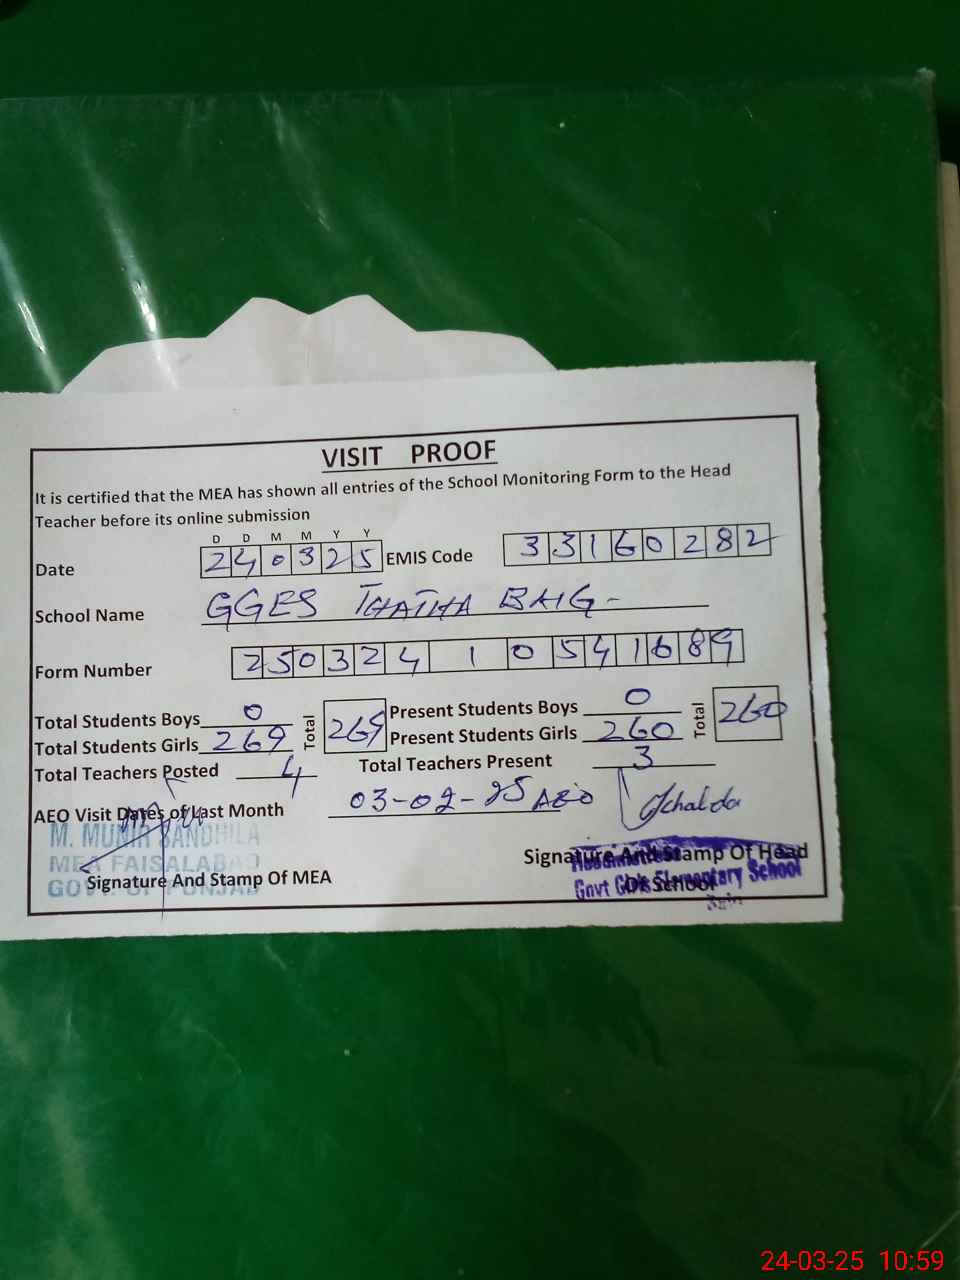 VISIT PROOF
It is certified that the MEA has shown all entries of the School Monitoring Form to the Head
Teacher before its online submission
D D M M Y Y
Date 240325 EMIS Code 33160282
School Name GGES THATHA BAIG-
Form Number 250324 1 0541689
Total Students Boys 0 Total 269 Present Students Boys 0 Total 260
Total Students Girls 269 Present Students Girls 260
Total Teachers Posted 4 Total Teachers Present 3
AEO Visit Dates of Last Month 03-02-25 AEO
M. MUNIR SANDHILA
MEA FAISALABAD
GOVT. OF PUNJAB
Signature And Stamp Of MEA
Signature And Stamp Of Head
Of School
Govt Girls Elementary School
24-03-25 10:59